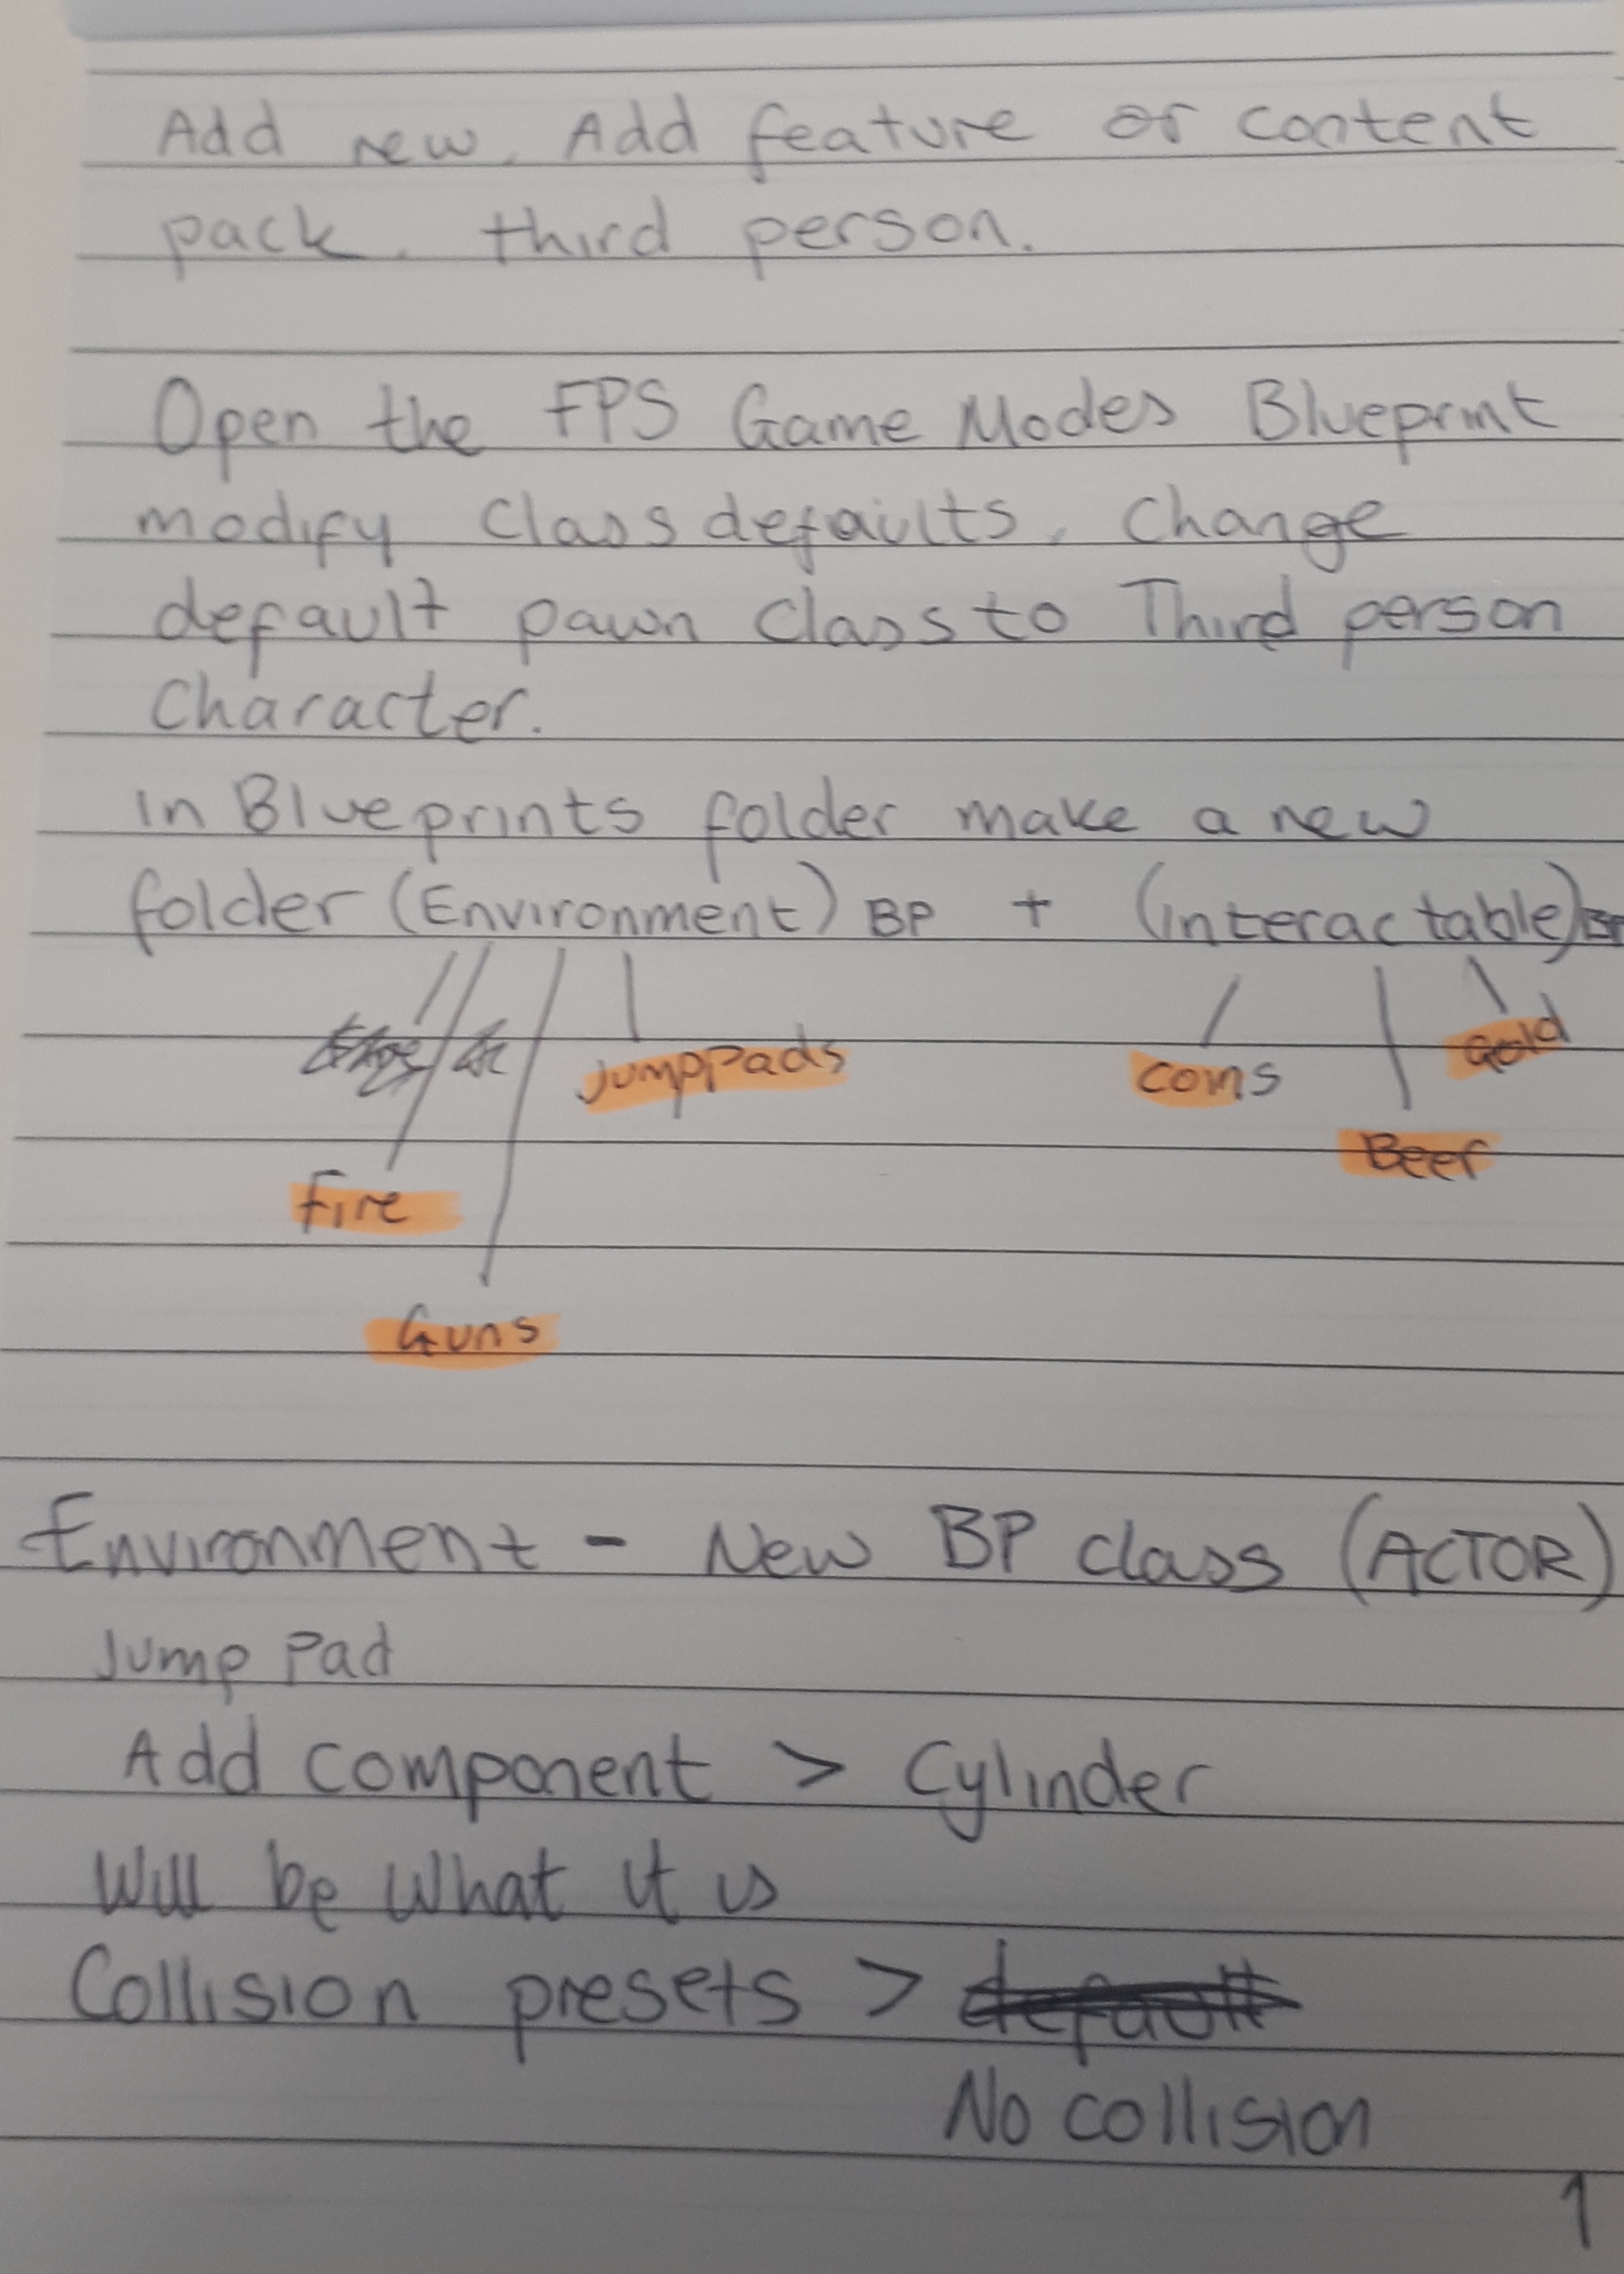 Add new. Add feature or content
pack. third person.
Open the FPS Game Modes Blueprint
modify class defaults. Change
default pawn class to Third person
Character.
in Blueprints folder make a new
folder (Environment) BP + (interactable)
jumpPads
coins
gold
Beef
Fire
Guns
Environment - New BP class (ACTOR)
Jump Pad
Add component > Cylinder
Will be what it is
Collision presets > default
No collision
1